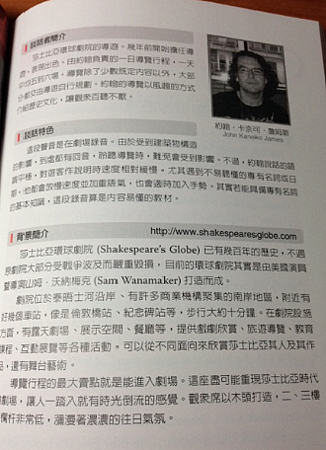 說話者簡介
莎士比亞環球劇院的導遊。幾年前開始擔任導
遊，表現出色。由約翰負責的一日導覽行程，一天
平均五到六場，導覽除了少數既定內容以外，大部
分都交由導遊自行規劃。約翰的導覽以風趣的方式
介紹歷史文化，讓觀眾百聽不厭。
約翰・卡奈可・詹姆斯
John Kaneko James
說話特色
這段聲音是在劇場錄音。由於受到建築物構造
的影響，到處都有回音，聆聽導覽時，難免會受到影響。不過，約翰說話的語
調平穩，對遊客作說明時速度相對緩慢。尤其遇到不易聽懂的專有名詞或日
期，他都會放慢速度並加重語氣，也會適時加入手勢。其實若能具備專有名詞
的基本知識，這段錄音算是內容易懂的教材。
背景簡介
http://www.shakespearesglobe.com
莎士比亞環球劇院 (Shakespeare's Globe) 已有幾百年的歷史，不過
原劇院大部分受戰爭波及而嚴重毀損，目前的環球劇院其實是由美國演員
暨導演山姆・沃納梅克 (Sam Wanamaker) 打造而成。
劇院位於泰晤士河沿岸、有許多商業機構聚集的南岸地區，附近有
好幾個車站，像是倫敦橋站、紀念碑站等，步行大約十分鐘。在劇院設施
方面，有露天劇場、展示空間、餐廳等，提供戲劇欣賞、旅遊導覽、教育
課程、互動展覽等各種活動。可以從不同面向來欣賞莎士比亞其人及其作
品，還有舞台藝術。
導覽行程的最大賣點就是能進入劇場。這座盡可能重現莎士比亞時代
劇場，讓人一踏入就有時光倒流的感覺。觀眾席以木頭打造，二、三樓
欄杆非常低，瀰漫著濃濃的往日氣氛。